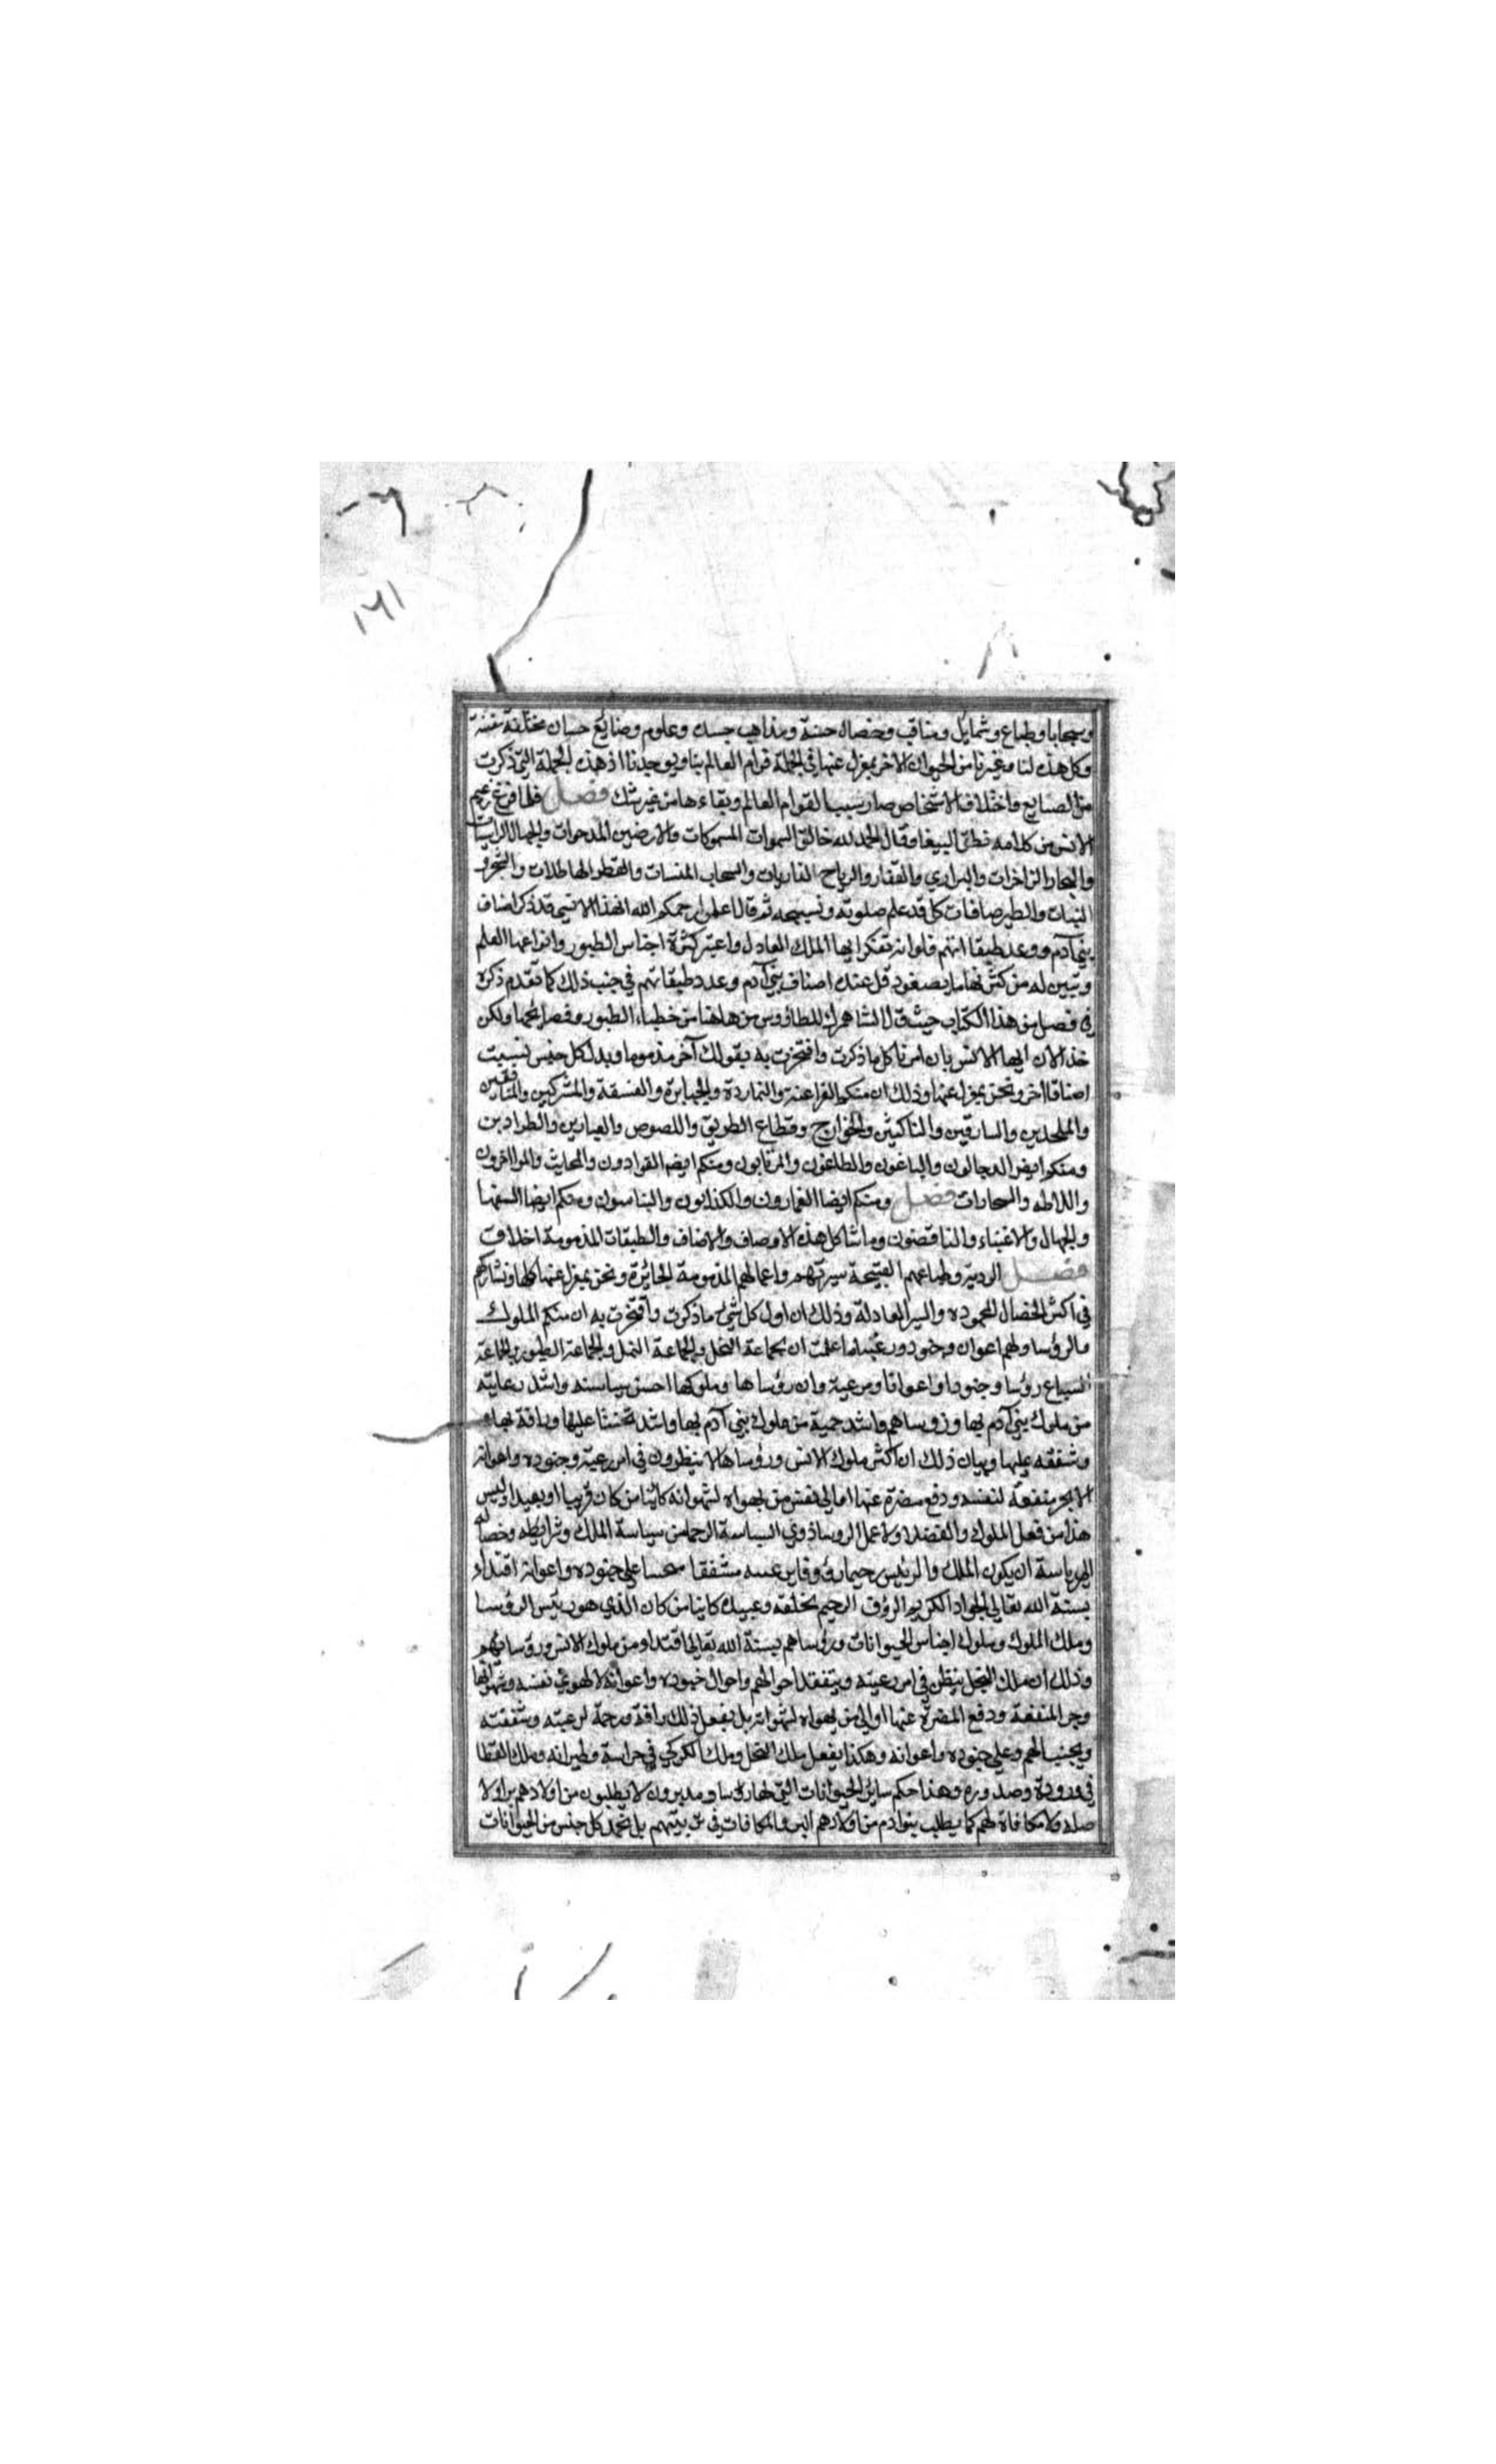 ١٦١
وسجايا وطباع وشمايل ومناقب وخصال حسنة ومذاهب حسنة وعلوم وصنايع حسان مختلفة مفننة
وكل هذه لنا وغيرنا من الحيوان الاخر بمعزل عنها في الجملة قوام العالم بنا وبوجدنا اذ هذه الجملة التي ذكرت
من الصنايع واختلاف الاشخاص صار سببا لقوام العالم وبقاءها من غير شك فصل فلما فرغ زعيم
الانس من كلامه نطق الببيغا وقال الحمد لله خالق السموات المسموكات والارضين المدحوات والجبال الراسيات
والبحار الزاخرات والبراري والقفار والرياح الذاريات والسحاب المنشات والقطر الهاطلات والشجر و
النبات والطير صافات كل قد علم صلوته وتسبيحه ثم قال اعلموا رحمكم الله ان هذا الانسي قد ذكر اصناف
بني آدم وعد طبقاتهم فلو انه تفكر ايها الملك العادل واعتبر كثرة اجناس الطيور وانواعها لعلم
وتبين له من كثرتها ما يصغر وقل عنده اصناف بني آدم وعدد طبقاتهم في جنب ذلك كما تقدم ذكره
في فصل من هذا الكتاب حيث قال الشاهمرك للطاووس من هاهنا من خطباء الطيور وفصحائها ولكن
خذ الان ايها الانسي بازاء كل ما ذكرت وافتخرت به بقولك آخر مذموما وبدل كل جنس نسبت
اصنافا اخر ونحن بمعزل عنها وذلك ان منكم الفراعنة والنماردة والجبابرة والفسقة والمشركين والمنافقين
والملحدين والمارقين والناكثين والخوارج وقطاع الطريق واللصوص والعيارين والطرادين
ومنكم ايضا الدجالون والباغون والطاغون والمرتابون ومنكم ايضا القوادون والمخانيث والمواجرون
واللاطه والسحارات فصل ومنكم ايضا الغمازون والكذابون والنباشون ومنكم ايضا السفها
والجهال والاغبياء والناقصون وما شاكل هذه الاوصاف والاصناف والطبقات المذمومة اخلاقهم
فصل الردية وطباعهم القبيحة سيرتهم واعمالهم المذمومة الجائرة ونحن بمعزل عنها كلها ونشارككم
في اكثر الخصال المحموده والسير العادلة وذلك ان اول كل شئ ما ذكرت وافتخرت به ان منكم الملوك
والرؤسا ولهم اعوان وجنود ورعية اما علمت ان لجماعة النحل ولجماعة النمل ولجماعة الطيور ولجماعة
السباع رؤسا وجنودا واعوانا ورعية وان رؤساها وملوكها احسن سياسته واشد رعاية
من ملوك بني آدم بها ورؤساهم واشد حمية من ملوك بني آدم بها واشد تحننا عليها ورافة بها و
وشفقه عليها وبيان ذلك ان اكثر ملوك الانس ورؤساها لا ينظرون في امر رعيته وجنوده واعوانه
الا لجر منفعة لنفسه ودفع مضرة عنها اما الى نفس من يهواه لشهواته كائنا من كان قريبا او بعيدا وليس
هذا من فعل الملوك والفضلا ولا عمل الروسا ذوي السياسة الرحما من سياسة الملك وشرايطه وخصال
الرياسة ان يكون الملك والرئيس رحيما رؤوفا مشفقا متحننا على جنوده واعوانه اقتداء
بسنة الله تعالى الجواد الكريم الرؤف الرحيم بخلقه وعبيده كاينا من كان الذي هو رئيس الرؤسا
وملك الملوك وملوك اجناس الحيوانات ورؤساهم بسنة الله تعالى اقتداء من ملوك الانس ورؤسائهم
وذلك ان ملك النحل ينظر في امر رعيته ويتفقد احوالهم واحوال جنوده واعوانه لا لهوى نفسه وشهواتها
وجر المنفعة ودفع المضرة عنها او الى من يهواه لشهواته بل يفعل ذلك رافة ورحمة لرعيته وشفقته
على جنوده واعوانه وهكذا يفعل ملك النحل وملك الكركي في حراسة وطيرانه وملك القطا
في وروده وصدوره وهذا حكم ساير الحيوانات التي لها رؤسا ومدبرون لا يطلبون من اولادهم برا ولا
صلة ولا مكافاة لهم كما يطلب بنو ادم من اولادهم البر والمكافات في تربيتهم بل نجد كل جنس من الحيوانات